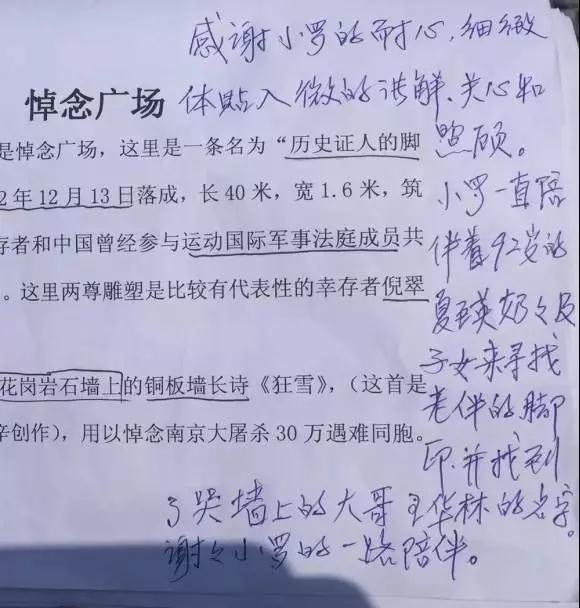 感谢小罗的耐心,细微
体贴入微的讲解、关心和
照顾。
小罗一直陪
伴着92岁的
夏英奶々及
子女来寻找
老伴的脚
印.并找到
了哭墙上的大哥王华林的名字。
谢々小罗的一路陪伴。
悼念广场
是悼念广场，这里是一条名为“历史证人的脚
2年12月13日落成，长40米，宽1.6米，筑
存者和中国曾经参与运动国际军事法庭成员共
。这里两尊雕塑是比较有代表性的幸存者倪翠
花岗岩石墙上的铜板墙长诗《狂雪》，（这首是
辛创作），用以悼念南京大屠杀30万遇难同胞。